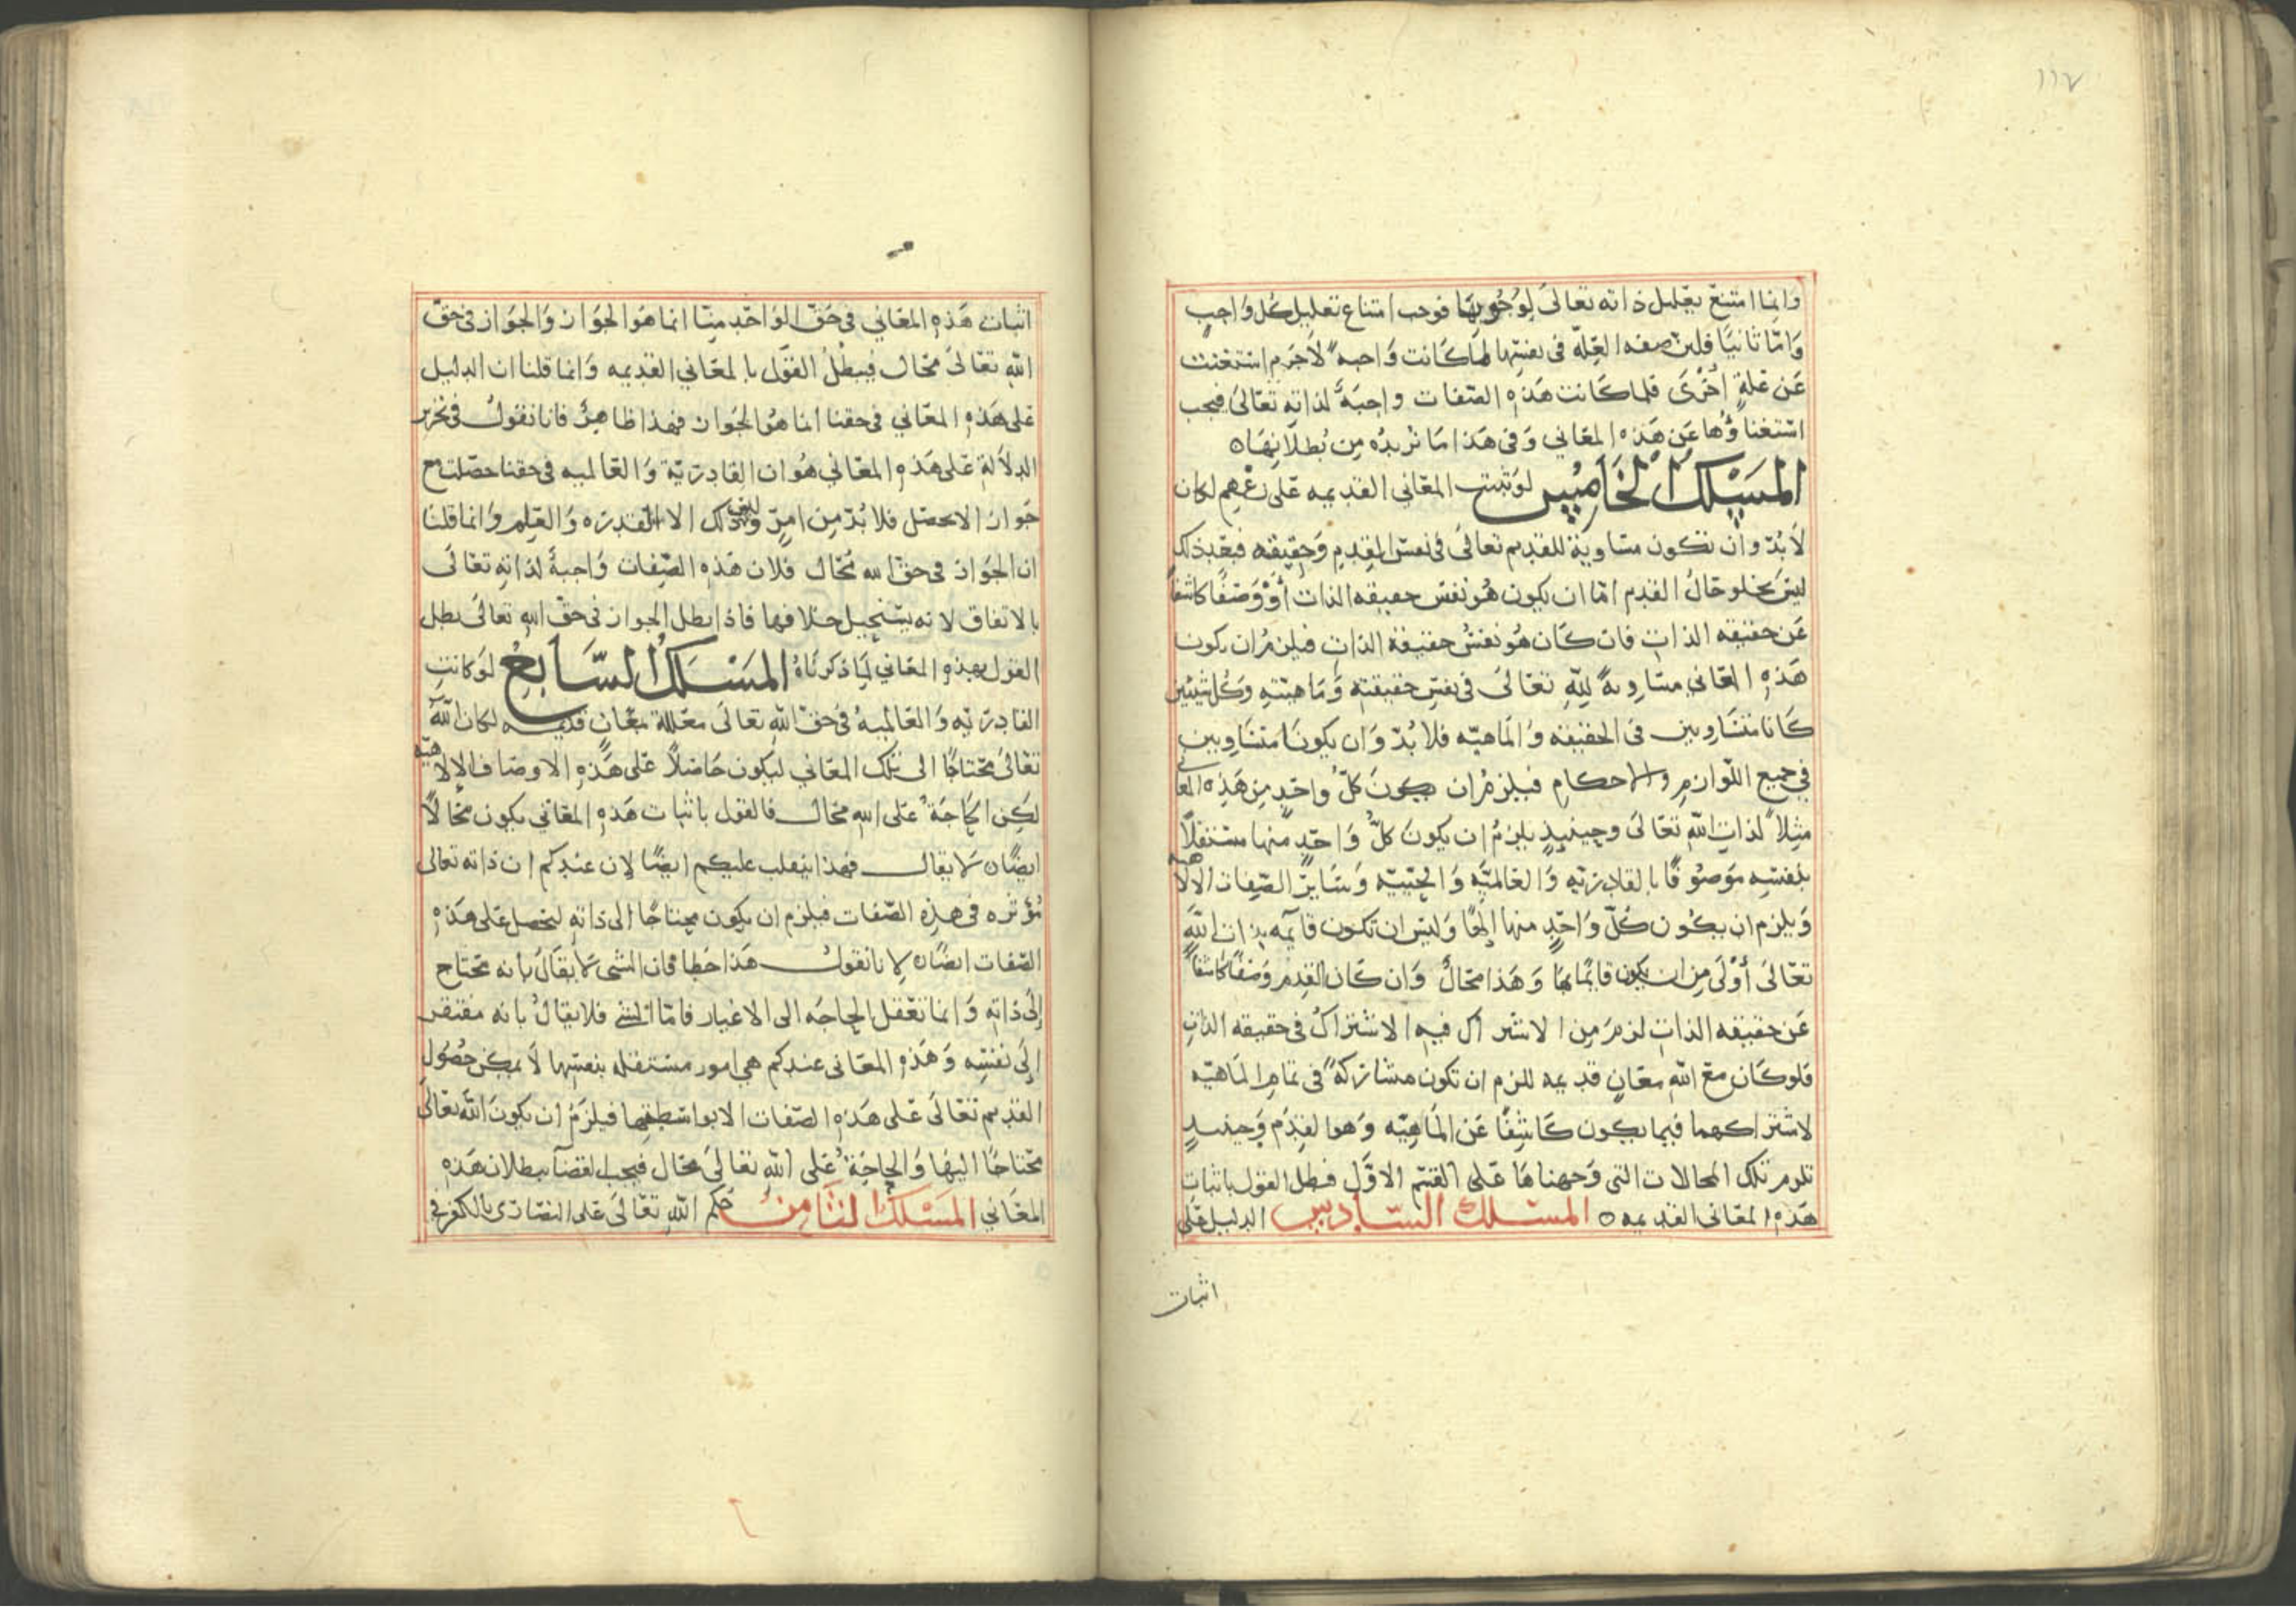 ١١٧
وانما امتنع تعليل ذاته تعالى لوجوبها فوجب امتناع تعليل كل واجب
وَامّا ثانيًا فلان صفه العِلّة فى نفسها لما كانت وَاجبهً لاجرم استغنت
عَن عَلةٍ اُخْرَى فلما كَانت هَذه الصّفات واجبَةً لذاته تعَالى فيجب
استغناؤُها عَن هَذه المعَانِي وَفى هَذا مَا نُريدُه مِن بُطلَانِهَا ه
المَسْلكُ الخَامِسُ لوَ ثبتت المعَاني القديمه عَلى زعْمِهم لكان
لَا بُدّ وَان تكون مسَاويَة للقديم تعالى فى نفس القِدمِ وَحقيقته فبعْد ذلك
ليسَ يخلو حَالُ القدم امّا ان يكون هُو نفس حقيقه الذات أَوْ وَصْفًا كاشفًا
عَن حقيقه الذاتِ فان كَان هُو نفسُ حقيقة الذاتِ فيلزمُ ان يكون
هَذهِ المعَاني مسَاويةً لِلّهِ تعَالى فى نفسِ حقيقتهِ وَمَاهيّتهِ وَكُل شيئين
كَانا متسَاويين فى الحقيقه وَالمَاهيّه فلا بُدّ وَان يكونَا متسَاويين
في جميع اللّوازم والاحكام فيلزمُ ان يكونَ كلّ واحدٍ مِن هَذِه المعانى
مثِلاً لذاتِ اللّهِ تعَالَى وحينيِذٍ يلزمُ ان يكونَ كلُّ وَاحدٍ منها مسْتقلاً
بنفسِهِ مَوصُوفًا بالقادرتيه وَالعَالميّه وَالحيّيّه وَسَايرُ الصّفات الالاهيه
وَيلزم ان يكُون كُلّ وَاحدٍ منها إلهًا وَليس ان تكون قايمه بذات اللّهِ
تعَالى أوْلَى مِن ان يكون قايمًا بهَا وَهَذا محَالٌ وَان كَان القدم وَصْفًا كاشفًا
عَن حقيقه الذاتِ لزمَ مِن الاشتراك فيهِ الاشتراكُ فى حقيقه الذاتِ
فلو كَان معَ اللّهِ معَانٍ قديمه للزم ان تكون مشاركهً فى تمامِ المَاهيّه
لاشتراكهما فيما يكون كَاشِفًا عَن المَاهِيّه وَهو القِدَم وَحينيذٍ
تلزم تلك المحالات التى وَجهناهَا عَلى القسْم الاوّلِ فبطل القول باثبات
هَذهِ المعَانى القديمه ه المسْلك السّادس الدليل عَلى
اثبات
اثبات هَذهِ المعَاني فى حَقّ الوَاحدِ مِنّا انما هُوَ الجَوَاز وَالجوَاز فى حَقّ
اللّهِ تعَالىَ محَال فيبطُلُ القوَل بالمعَاني القديمه وَانما قلنا ان الدليل
عَلى هَذهِ المعَاني فى حقنا انما هُو الجَوان فهَذا ظاهِرٌ فانا نقولُ فى تحرير
الدِلاَلة عَلى هَذهِ المعَاني هُو ان القادريّة وَالعَالميه فى حقنا حصَلت مع
جَواز الا تحصل فلا بُدّ مِن امرٍ وليسَ ذلك الا القدرَه وَالعِلم وَانما قلنا
ان الجَواز فى حق الله مُحَال فلان هَذهِ الصّفات وَاجبةً لذاتهِ تعَالَى
بالاتفاق لانه يسْتحيل خلافها فاذا بطل الجواز فى حقّ اللهِ تعَالىَ بطل
القول بهذهِ المعَاني لِما ذكرنَاهُ المَسْلكُ السّابِعُ لَو كانتِ
القادريّه وَالعَالميهُ فى حَقّ اللهِ تعَالىَ معَللة بمعَانٍ قديمه لكان اللّه
تعَالىَ محَتاجًا الى تلك المعَاني ليكون حَاصلاً عَلى هَذهِ الاوصَاف الالاهيّه
لكِن الحَاجَةُ عَلى اللهِ محَال فالقول باثبات هَذهِ المعَاني يكون محَالاً
ايضًا ه لا يقال فهذا ينقلب عليكم ايضًا لان عندِكم ان ذاته تعالى
مُؤثره فى هذِه الصّفات فيلزم ان يكون محتاجًا الى ذاتهِ لتحصل عَلى هَذهِ
الصّفات ايضًا ه لانا نقول هَذا خطا فان الشى لا يقَالُ بانه محْتاج
إلىَ ذاتهِ وَانما تعْقل الحاجَه الى الاغيار فامّا الشى فلا يقالُ بانه مفتقر
إلىَ نفسِه وَهَذهِ المعَانى عندِكم هى امور مسْتقله بنفسِها لَا يمكن حُصُول
القديم تعَالىَ عَلى هَذهِ الصّفات الا بواسَطتها فيلزَمُ ان يكونَ اللّه تعَالى
محَتاجًا اليهَا وَالحَاجَةُ عَلى اللّهِ تعَالىَ محَال فيجب القضاء ببطلان هَذهِ
المعَاني المَسْلكُ الثامنُ حَكم اللّهِ تعَالىَ عَلى النصَارَى بالكفر فى